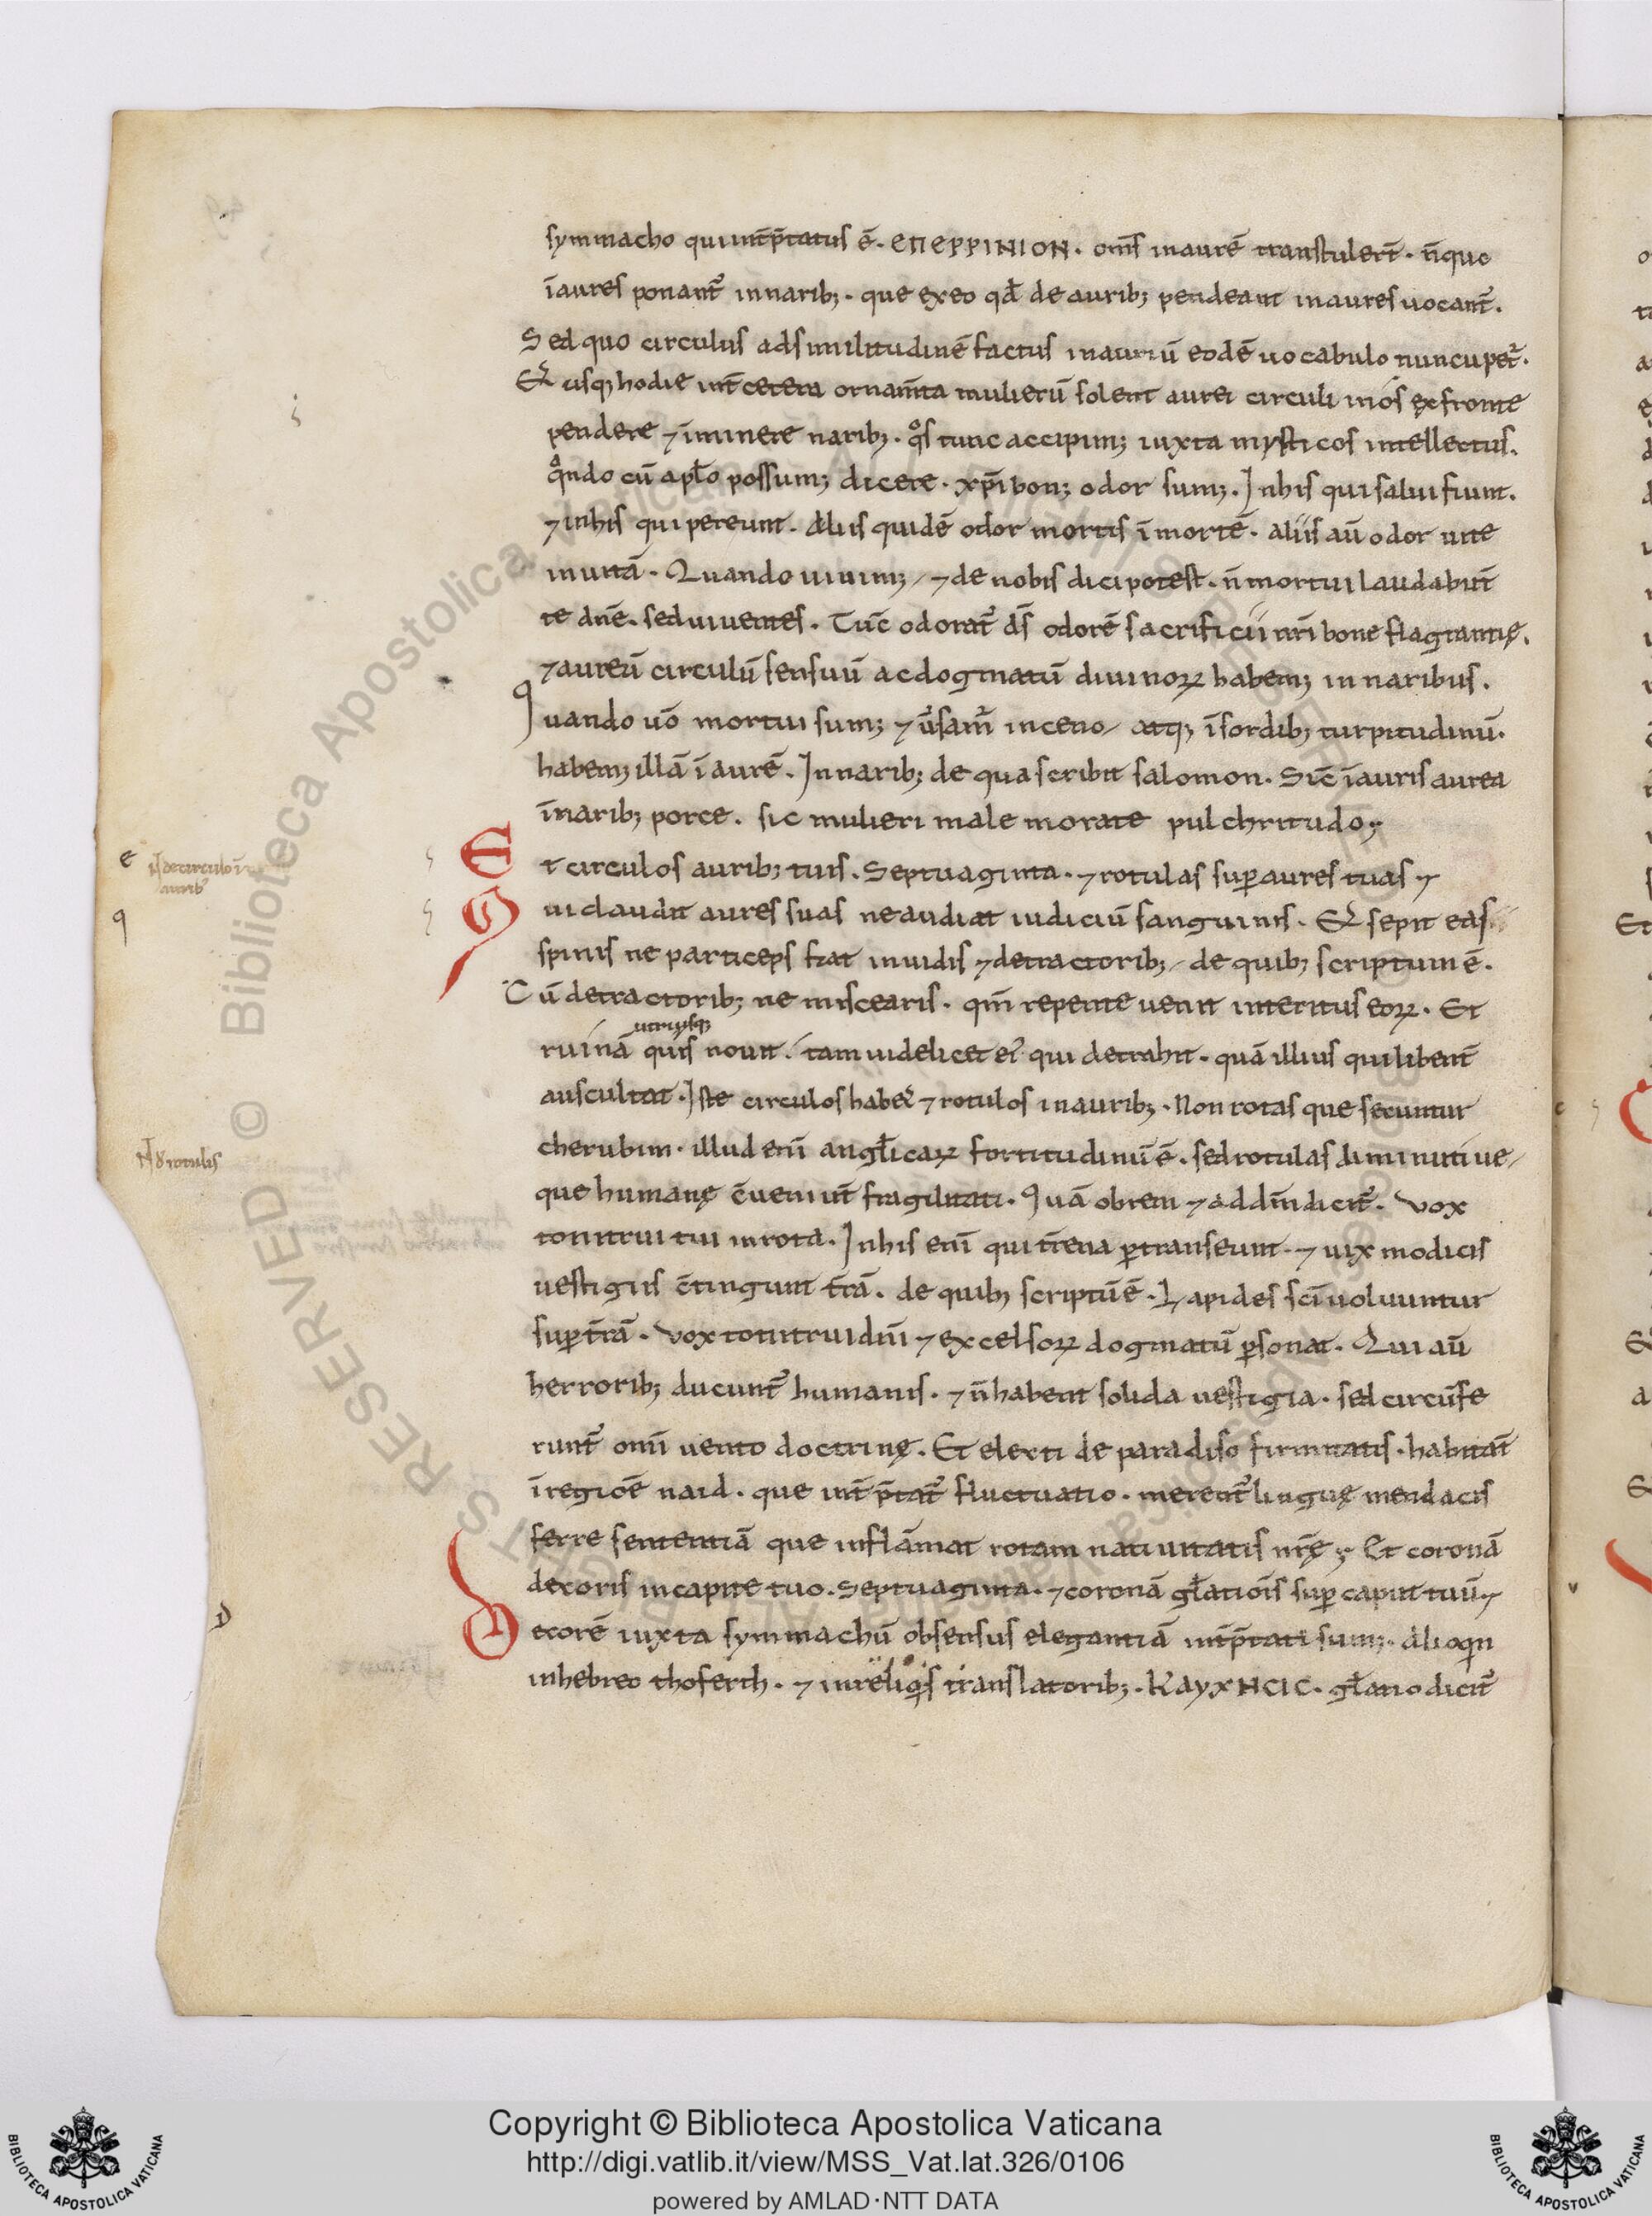 symmacho qui int̄p̄tatus ē. ЄΠЄΡΡΙΝΙΟΝ. om̄s inaurē transtulert̄. n̄ quo
īaures ponant᷑ innarib;. que ex eo qđ de aurib; pendeant inaures uocant᷑.
Sed quo circulus adsimilitudinē factus inauriū eodē uocabulo nuncupet᷑.
Et usq; hodie int̄ cetera ornam̄ta mulierū solent aurei circuli in os ex fronte
pendere ⁊ īminere narib;. qͦs tunc accipim; iuxta mysticos intellectus.
qͣndo cū apłͦo possum; dicere. xp̄i bon; odor sum;. Inhis qui salui fiunt.
⁊ inhis qui pereunt. Aliis quidē odor mortis ī mortē. aliis aū odor uite
inuitā. Quando uiuim; / ⁊ de nobis dici potest. n̄ mortui laudabūt
te dn̄e. sed uiuentes. Tūc odorat᷑ ds̄ odorē sacrificii nr̄i bone flagrantię.
⁊ aureū circulū sensuū ac dogmatū diuinoꝝ habem; in naribus.
Quando uō mortui sum; ⁊ ūsam᷑ inceno / atq; ī sordib; turpitudinū.
habem; illā ī aurē. Innarib; de qua scribit salomon. Sic̄ īauris aurea
īnarib; porce. sic mulieri male morate pulchritudo;
Et circulos aurib; tuis. Septuaginta. ⁊ rotulas suꝑ aures tuas ⁊
Qui claudit aures suas ne audiat iudiciū sanguinis. Et sepit eas
spinis ne particeps fiat inuidis ⁊ detractorib; / de quib; scriptum ē.
Cū detractorib; ne miscearis. qm̄ repente uenit interitus eoꝝ. Et
utriusq;
ruinā quis nouit. tam uidelicet ei᷑ qui detrahit. quā illius qui libent̄
auscultat. Iste circulos habet ⁊ rotulos inaurib;. Non rotas que secuntur
cherubim. illud enī angłicaꝝ fortitudinū ē. sed rotulas diminutiue /
que humanę c̄ueniūt fragilitati. Quā obrem ⁊ ad dn̄m dicit᷑. Vox
tonitrui tui inrota. Inhis enī qui tr̄ena ꝑtranseunt. ⁊ uix modicis
uestigiis c̄tingunt t̄rā. de quib; scriptū ē. Lapides sc̄i uoluuntur
suꝑ t̄rā. Vox tonitrui dn̄i ⁊ excelsoꝝ dogmatū ꝑsonat. Qui aū
herrorib; ducunt᷑ humanis. ⁊ n̄ habent solida uestigia. sed circūfe
runt᷑ omī uento doctrinę. Et electi de paradiso firmitatis. habitāt
ī regiōe naid. que int̄p̄tat᷑ fluctuatio. merent᷑ linguę mendacis
ferre sententiā que inflāmat rotam natiuitatis nr̄ę; Et coronā
decoris in capite tuo. Septuaginta. ⁊ coronā głatiōis suꝑ caput tuū. ⁊
Decorē iuxta symmachū ob sensus elegantiā int̄p̄tati sum;. Alioqn
inhebreo thoferth. ⁊ in reliqͥs translatorib;. KαyxHCIC. głatio dicit᷑
e
q
N̄ decirculo ī
aurib᷑
N̄ & rotulis
D
Et
v
Biblioteca Apostolica Vaticana
© Biblioteca Apostolica
RESERVED
Copyright © Biblioteca Apostolica Vaticana
http://digi.vatlib.it/view/MSS_Vat.lat.326/0106
powered by AMLAD·NTT DATA
BIBLIOTECA APOSTOLICA VATICANA
BIBLIOTECA APOSTOLICA VATICANA